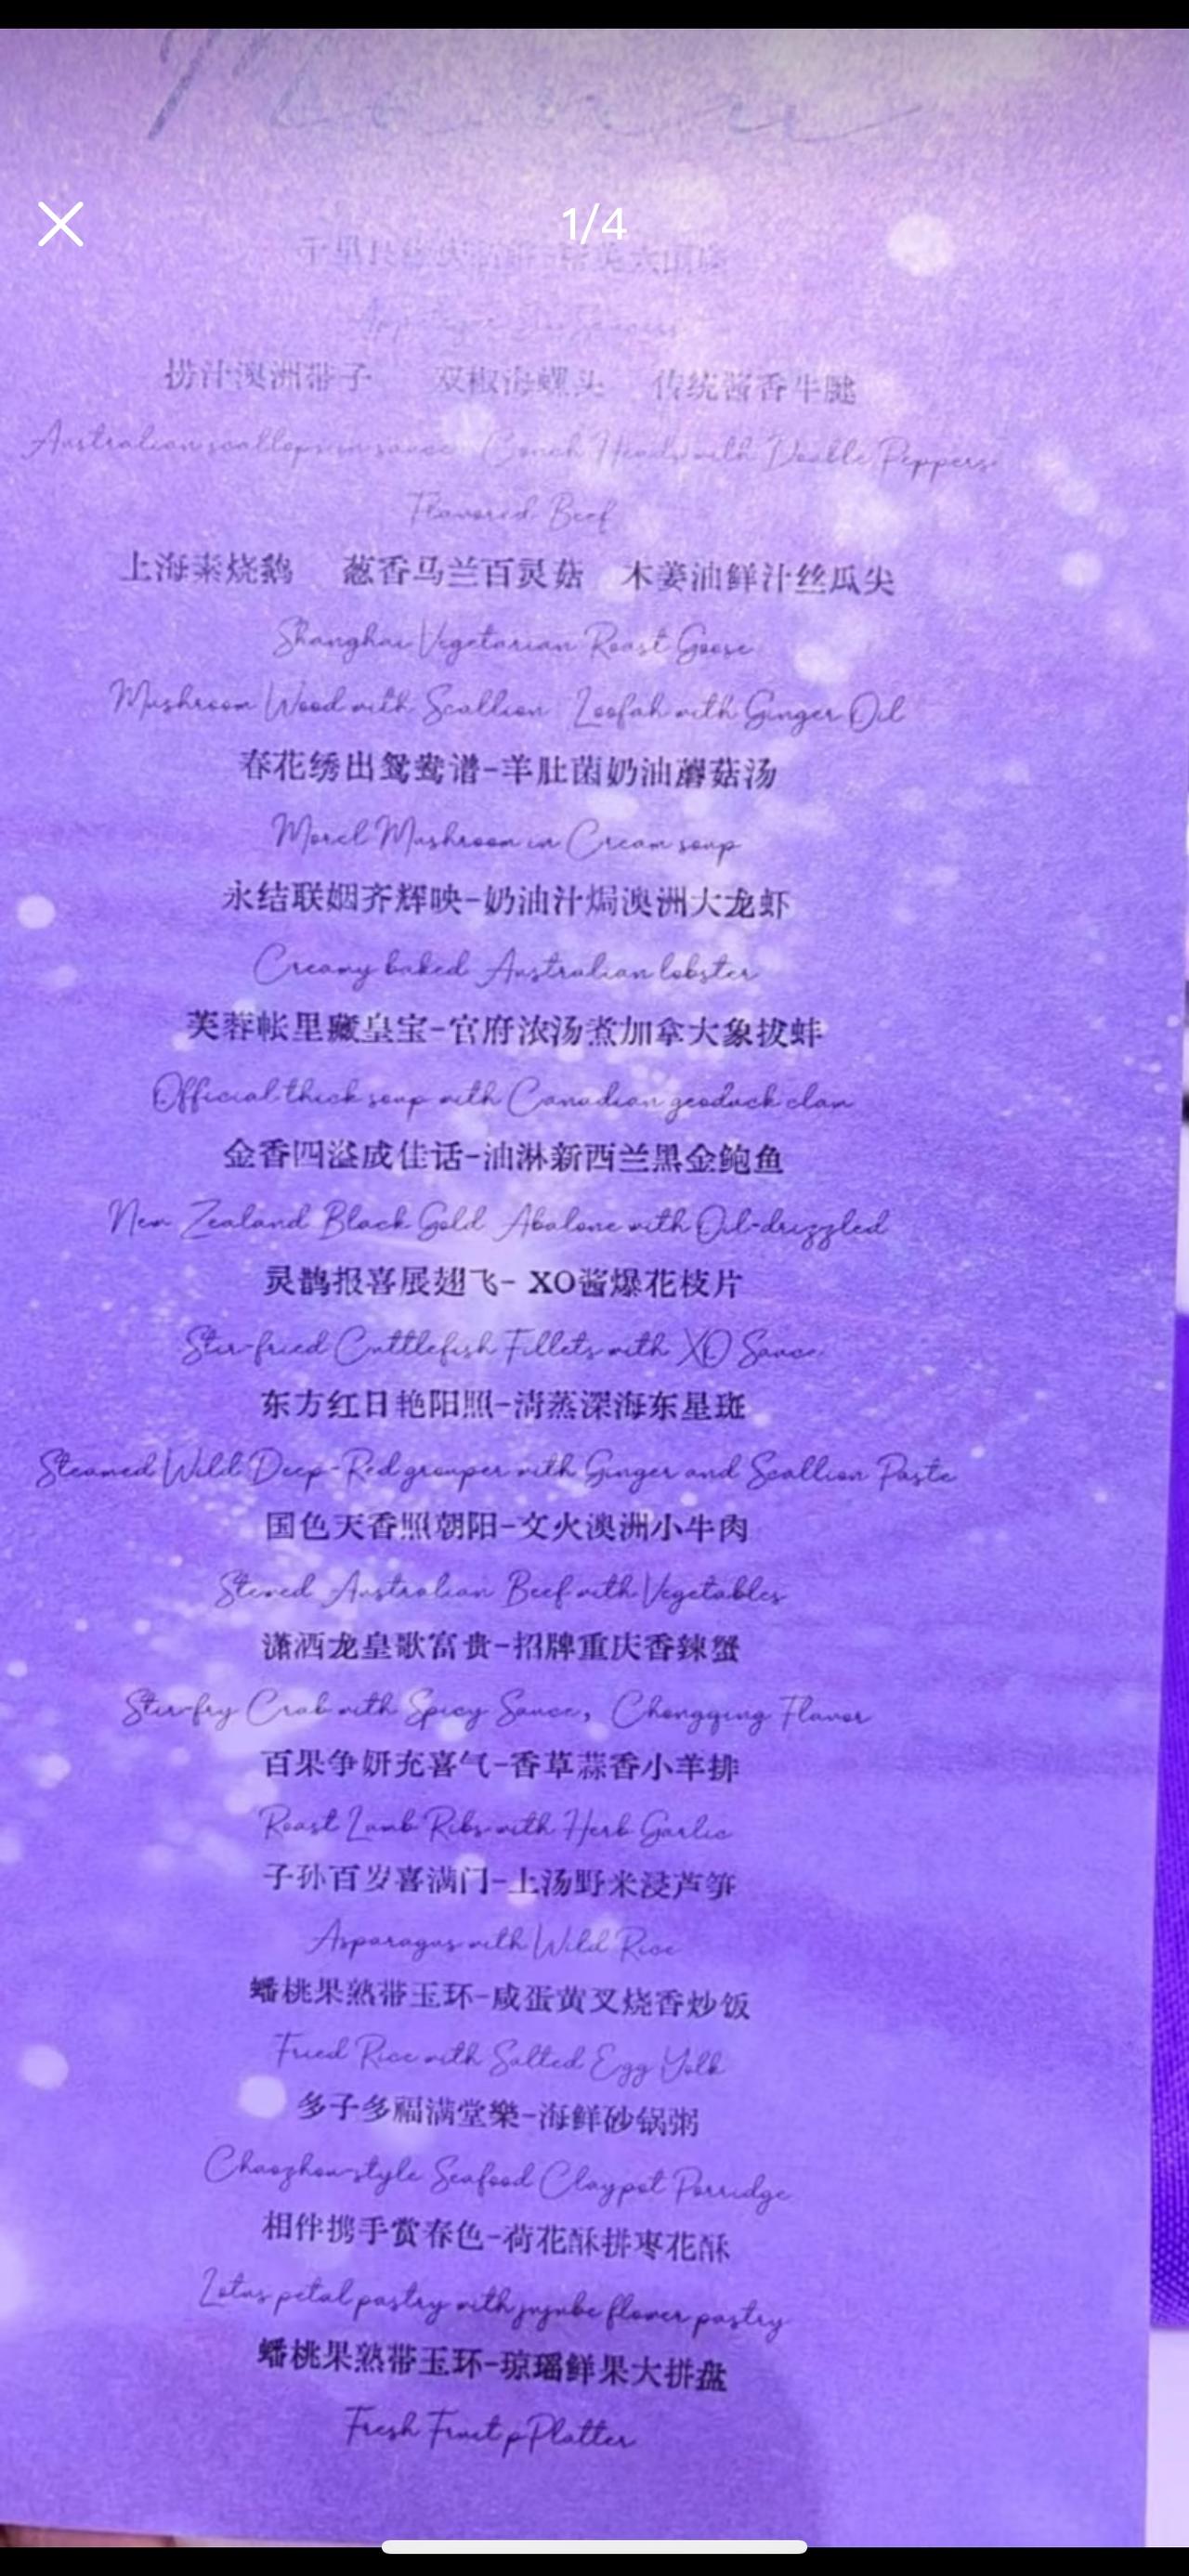 Menu
1/4
捞汁澳洲带子 双椒海螺头 传统酱香牛腱
Australian scallops in sauce Conch Heads with Double Peppers
Flavored Beef
上海素烧鹅 葱香马兰百灵菇 木姜油鲜汁丝瓜尖
Shanghai Vegetarian Roast Goose
Mushroom Wood with Scallion Loofah with Ginger Oil
春花绣出鸳鸯谱-羊肚菌奶油蘑菇汤
Morel Mushroom in Cream soup
永结联姻齐辉映-奶油汁焗澳洲大龙虾
Creamy baked Australian lobster
芙蓉帐里藏皇宝-官府浓汤煮加拿大象拔蚌
Official thick soup with Canadian geoduck clam
金香四溢成佳话-油淋新西兰黑金鲍鱼
New Zealand Black Gold Abalone with Oil-drizzled
灵鹊报喜展翅飞- XO酱爆花枝片
Stir-fried Cuttlefish Fillets with XO Sauce
东方红日艳阳照-清蒸深海东星斑
Steamed Wild Deep-Red grouper with Ginger and Scallion Paste
国色天香照朝阳-文火澳洲小牛肉
Stewed Australian Beef with Vegetables
潇洒龙皇歌富贵-招牌重庆香辣蟹
Stir-fry Crab with Spicy Sauce, Chongqing Flavor
百果争妍充喜气-香草蒜香小羊排
Roast Lamb Ribs with Herb Garlic
子孙百岁喜满门-上汤野米浸芦笋
Asparagus with Wild Rice
蟠桃果熟带玉环-咸蛋黄叉烧香炒饭
Fried Rice with Salted Egg Yolk
多子多福满堂樂-海鲜砂锅粥
Chaozhou-style Seafood Claypot Porridge
相伴携手赏春色-荷花酥拼枣花酥
Lotus petal pastry with jujube flower pastry
蟠桃果熟带玉环-琼瑶鲜果大拼盘
Fresh Fruit pPlatter